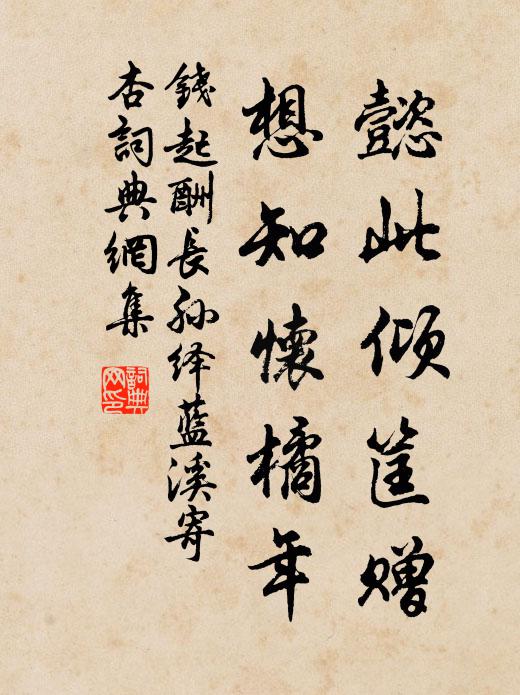 懿此倾筐赠
想知懷橘年
錢起酬長孙绎藍溪寄
杏詞典網集
詞典网印